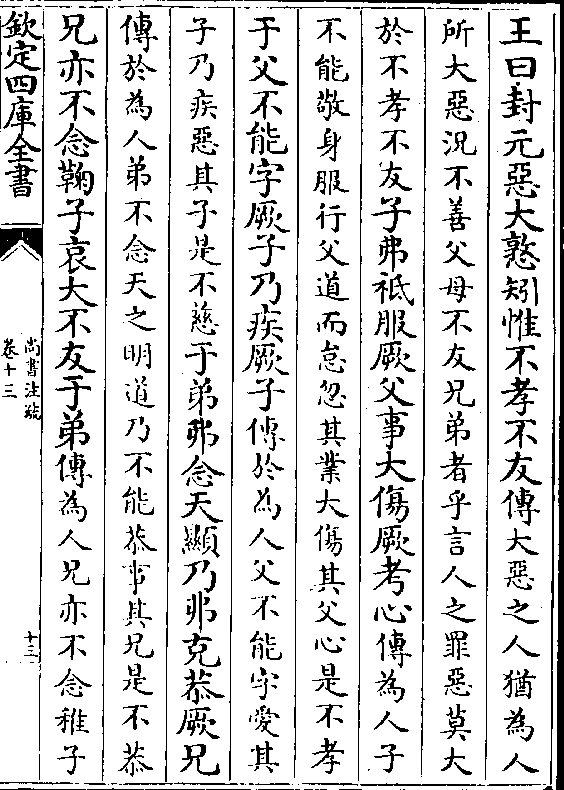 王曰封元惡大憝矧惟不孝不友傳大惡之人猶為人
所大惡況不善父母不友兄弟者乎言人之罪惡莫大
於不孝不友子弗祗服厥父事大傷厥考心傳為人子
不能敬身服行父道而怠忽其業大傷其父心是不孝
于父不能字厥子乃疾厥子傳於為人父不能字愛其
子乃疾惡其子是不慈于弟弗念天顯乃弗克恭厥兄
傳於為人弟不念天之明道乃不能恭事其兄是不恭
兄亦不念鞠子哀大不友于弟傳為人兄亦不念稚子
欽定四庫全書
尚書注疏
卷十三
十三